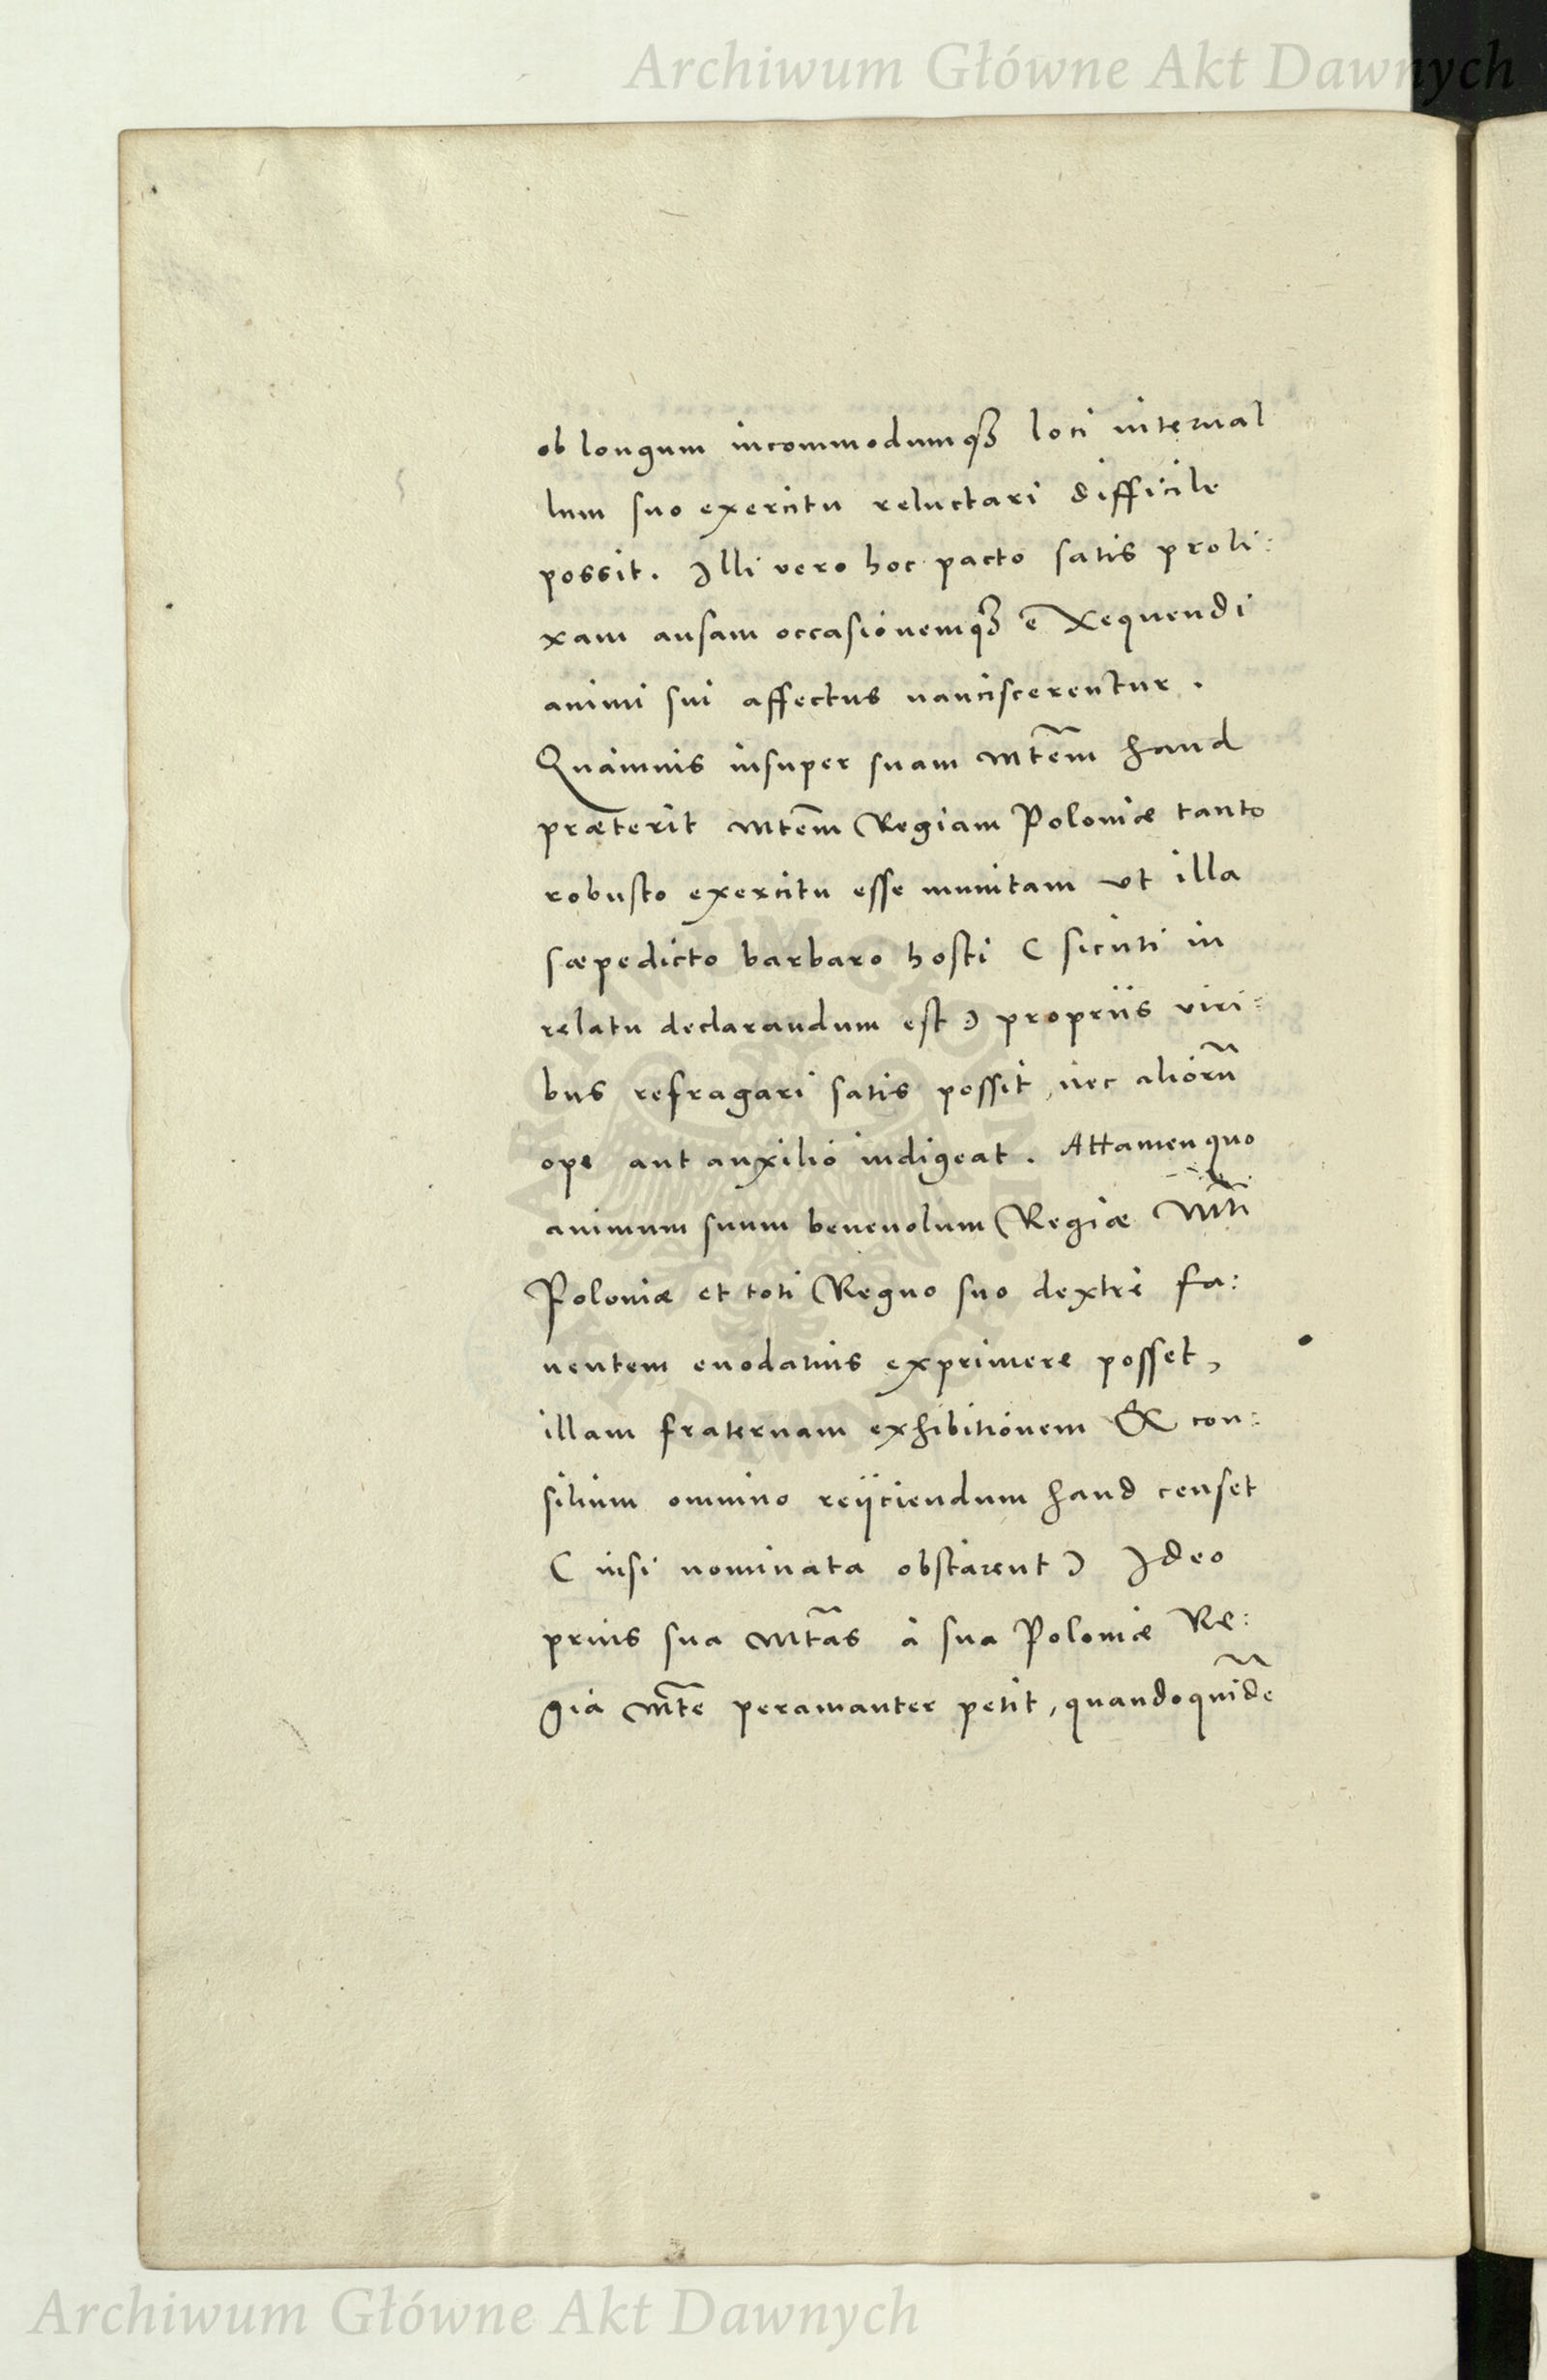 Archiwum Główne Akt Dawnych
ob longum incommodumq3 loci interual
lum suo exercitu reluctari difficile
possit. Illi vero hoc pacto satis proli:
xam ansam occasionemq3 exequendi
animi sui affectus nanciscerentur.
Quamuis insuper suam Mtem haud
præterit Mtem Regiam Poloniæ tanto
robusto exercitu esse munitam vt illa
sæpedicto barbaro hosti ( sicuti in
relatu declarandum est ) propriis viri:
bus refragari satis possit, nec aliorū
ope aut auxilio indigeat. Attamen quo
animum suum beneuolum Regiæ Mti
Poloniæ et toti Regno suo dextrè fa:
uentem enodatius exprimere posset,
illam fraternam exhibitionem & con:
silium omnino reijciendum haud censet
( nisi nominata obstarent ) Ideo
prius sua Mtas à sua Poloniæ Re:
gia Mte peramanter petit, quandoquidē
ARCHIWUM GŁÓWNE AKT DAWNYCH
Archiwum Główne Akt Dawnych